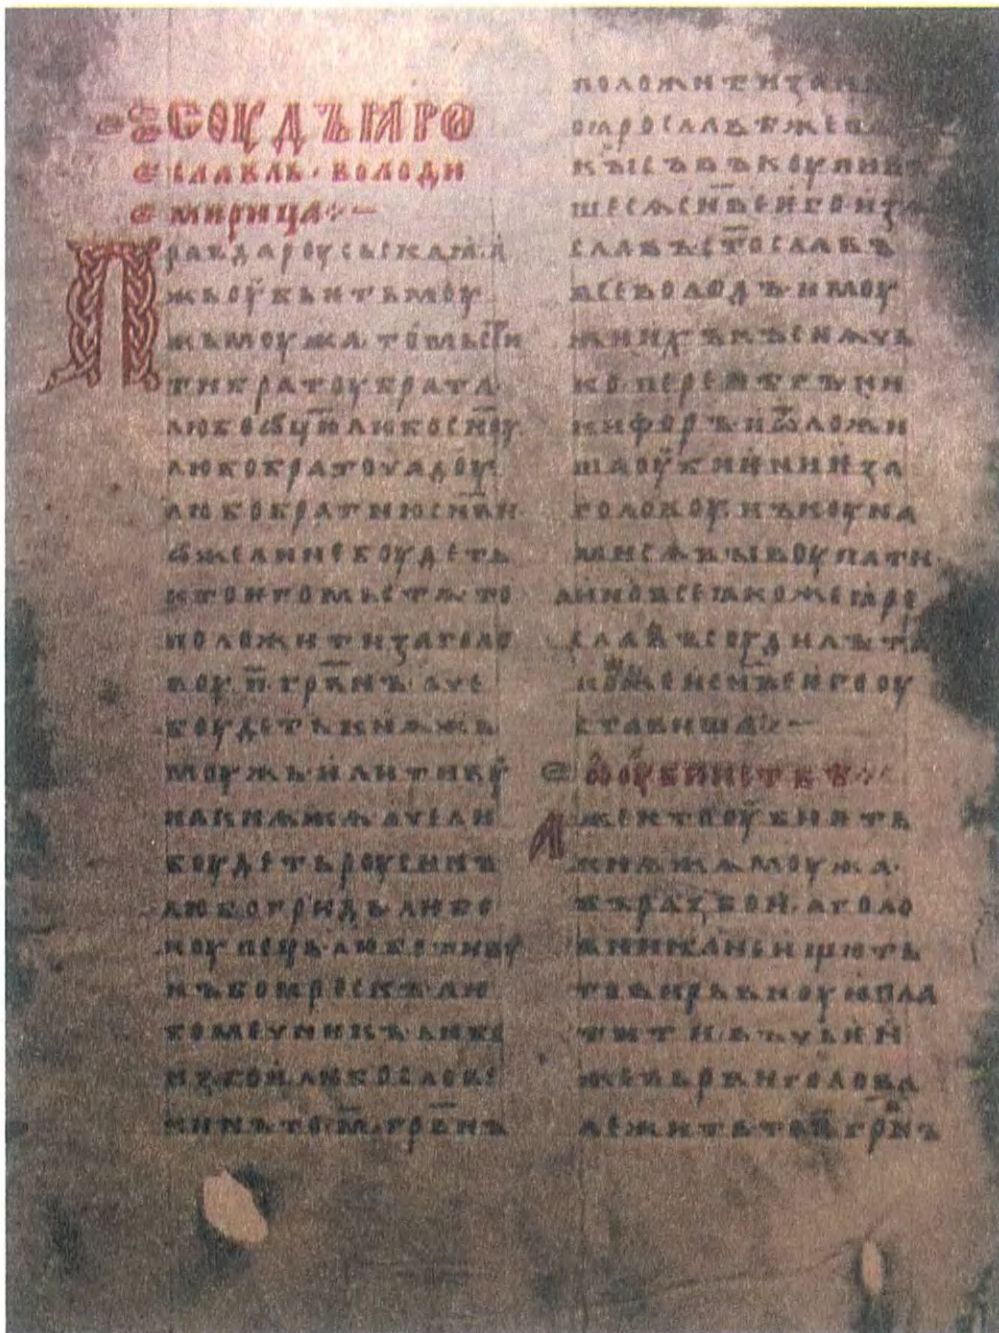 СОУДЪ ꙖРО
СЛАВЛЬ · ВОЛОДИ
МИРИЦА ⁘ —
ПРАВДА РОУСЬСКАꙖ · А
ЖЬ ОУБЬѤТЬ МОУ
ЖЬ МОУЖА · ТО МЬСТИ
ТИ БРАТОУ БРАТА
ЛЮБО ѾЦЮ ЛЮБО СНОУ
ЛЮБО БРАТОУЧАДОУ
ЛЮБО БРАТНЮ СНВИ
ОЖЕ ЛИ НЕ БОУДЕТЬ
КТО ѤГО МЬСТѦ ТО
ПОЛОЖИТИ ЗА ГОЛО
ВОУ · П · ГРВНЪ · АЧЕ
БОУДЕТЬ КНѦЖЬ
МОУЖЬ ИЛИ ТИВОУ
НА КНѦЖА АЧЕ ЛИ
БОУДЕТЬ РОУСИНЪ
ЛЮБО ГРИДЬ ЛЮБО
КОУПЕЦЬ ЛЮБО ТИВОУ
НЪ БОꙖРЕСКЪ ЛЮ
БО МЕЧНИКЪ ЛЮБО
ИЗГОИ ЛЮБО СЛОВѢ
НИНЪ ТО · М · ГРВНЪ
ПОЛОЖИТИ ЗА НЬ
ПО ꙖРОСЛАВѢ ЖЕ ПА
КЫ СЪВЪКОУПИВЪ
ШЕСѦ СНВЕ ѤГО ИЗѦ
СЛАВЪ СТОСЛАВЪ
ВСЕВОЛОДЪ И МОУ
ЖИ ИХЪ КЪСНѦЧЬ
КО ПЕРЕНѢГЪ НИ
КИФОРЪ И ѾЛОЖИ
ША ОУБИѤНИѤ ЗА
ГОЛОВОУ НЪ КОУНА
МИ СѦ ВЫКОУПАТИ
А ИНО ВСЕ ꙖКОЖЕ ꙖРО
СЛАВЪ СОУДИЛЪ ТА
КОЖЕ И СНВЕ ѤГО ОУ
СТАВИША ⁘ —
О ОУБИИСТВѢ ⁘
АЖЕ КТО ОУБИѤТЬ
КНѦЖА МОУЖА ·
ВЪ РАЗБОИ · А ГОЛО
ВНИКА НЕ ИЩЮТЬ
ТО ВИРЬВНОУЮ ПЛА
ТИТИ ВЪ ЧЬѤИ
ЖЕ ВЬРВИ ГОЛОВА
ЛЕЖИТЬ ТО П ГРВНЪ